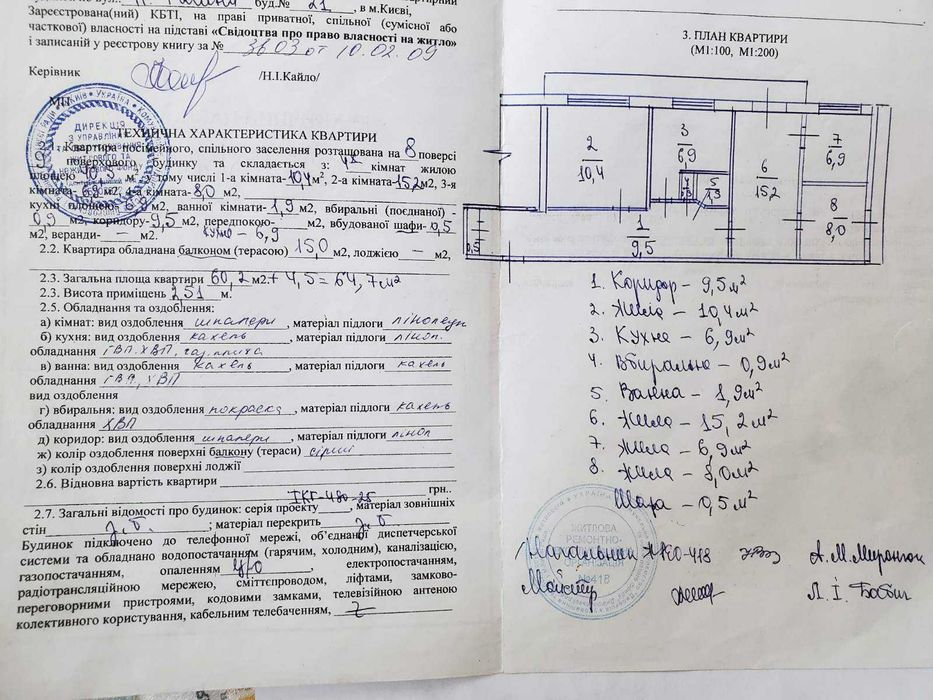 буд.№ 21, в м.Києві,
Зареєстрована(ний) КБТІ, на праві приватної, спільної (сумісної або
часткової) власності на підставі «Свідоцтва про право власності на житло»
і записаній у реєстрову книгу за № 3603 от 10.02.09
Керівник /Н.І.Кайло/
МП
ДИРЕКЦІЯ
З УПРАВЛІННЯ
ТЕХНІЧНА ХАРАКТЕРИСТИКА КВАРТИРИ
Квартира посімейного, спільного заселення розташована на 8 поверсі
поверхового будинку та складається з: 4х кімнат жилою
площею 40,5 м², тому числі 1-а кімната-10,4м², 2-а кімната-15,2м2, 3-я
кімната-6,9м2, 4-а кімната-8,0 м2,
кухні площею-6,9 м2, ванної кімнати-1,9м2, вбиральні (поєднаної) -
0,9 м2, коридору-9,5 м2, передпокою- м2, вбудованої шафи-0,5
м2, веранди- – м2. кухню – 6,9
2.2. Квартира обладнана балконом (терасою) 15,0 м2, лоджією – м2,
2.3. Загальна площа квартири 60,2 м2.+ 4,5 = 64,7м²
2.3. Висота приміщень 2,51 м.
2.5. Обладнання та оздоблення:
а) кімнат: вид оздоблення шпалери, матеріал підлоги лінолеум
б) кухня: вид оздоблення кахель, матеріал підлоги лінол.
обладнання ГВП.ХВП, газ.плита
в) ванна: вид оздоблення кахель, матеріал підлоги кахель
обладнання ГВП, ХВП
вид оздоблення
г) вбиральня: вид оздоблення покраска, матеріал підлоги кахель
обладнання ХВП
д) коридор: вид оздоблення шпалери, матеріал підлоги лінол
ж) колір оздоблення поверхні балкону (тераси) сірий
з) колір оздоблення поверхні лоджії
2.6. Відновна вартість квартири
грн..
2.7. Загальні відомості про будинок: серія проекту ТКГ-480-25, матеріал зовнішніх
стін з.б. ; матеріал перекрить з.б.
Будинок підключено до телефонної мережі, об'єднаної диспетчерської
системи та обладнано водопостачанням (гарячим, холодним), каналізацією,
газопостачанням, опаленням ц/о, електропостачанням,
радіотрансляційною мережею, сміттєпроводом, ліфтами, замково-
переговорними пристроями, кодовими замками, телевізійною антеною
колективного користування, кабельним телебаченням,
3. ПЛАН КВАРТИРИ
(М1:100, М1:200)
2
10,4
3
6,9
6
15,2
7
6,9
8
8,0
4
0,9
5
1,9
1
9,5
0,5
1. Коридор – 9,5м²
2. Жила – 10,4м²
3. Кухня – 6,9м²
4. Вбиральня – 0,9м²
5. Ванна – 1,9м²
6. Жила – 15,2м²
7. Жила – 6,9м²
8. Жила – 8,0м²
Шафа – 0,5м²
ЖИТЛОВА
РЕМОНТНО-
ОРГАНІЗАЦІЯ
№418
Начальник ЖРЕО-418
Майстер Л.І. Бабич